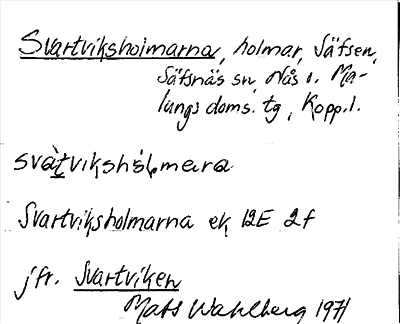 Svartviksholmarna, holmar, Säfsen,
Säfsnäs sn, Nås o. Ma-
lungs doms. tg, Kopp. l.
svàtvikshòlmara
Svartviksholmarna ek 12E 2f
jfr. Svartviken
Mats Wahlberg 1971